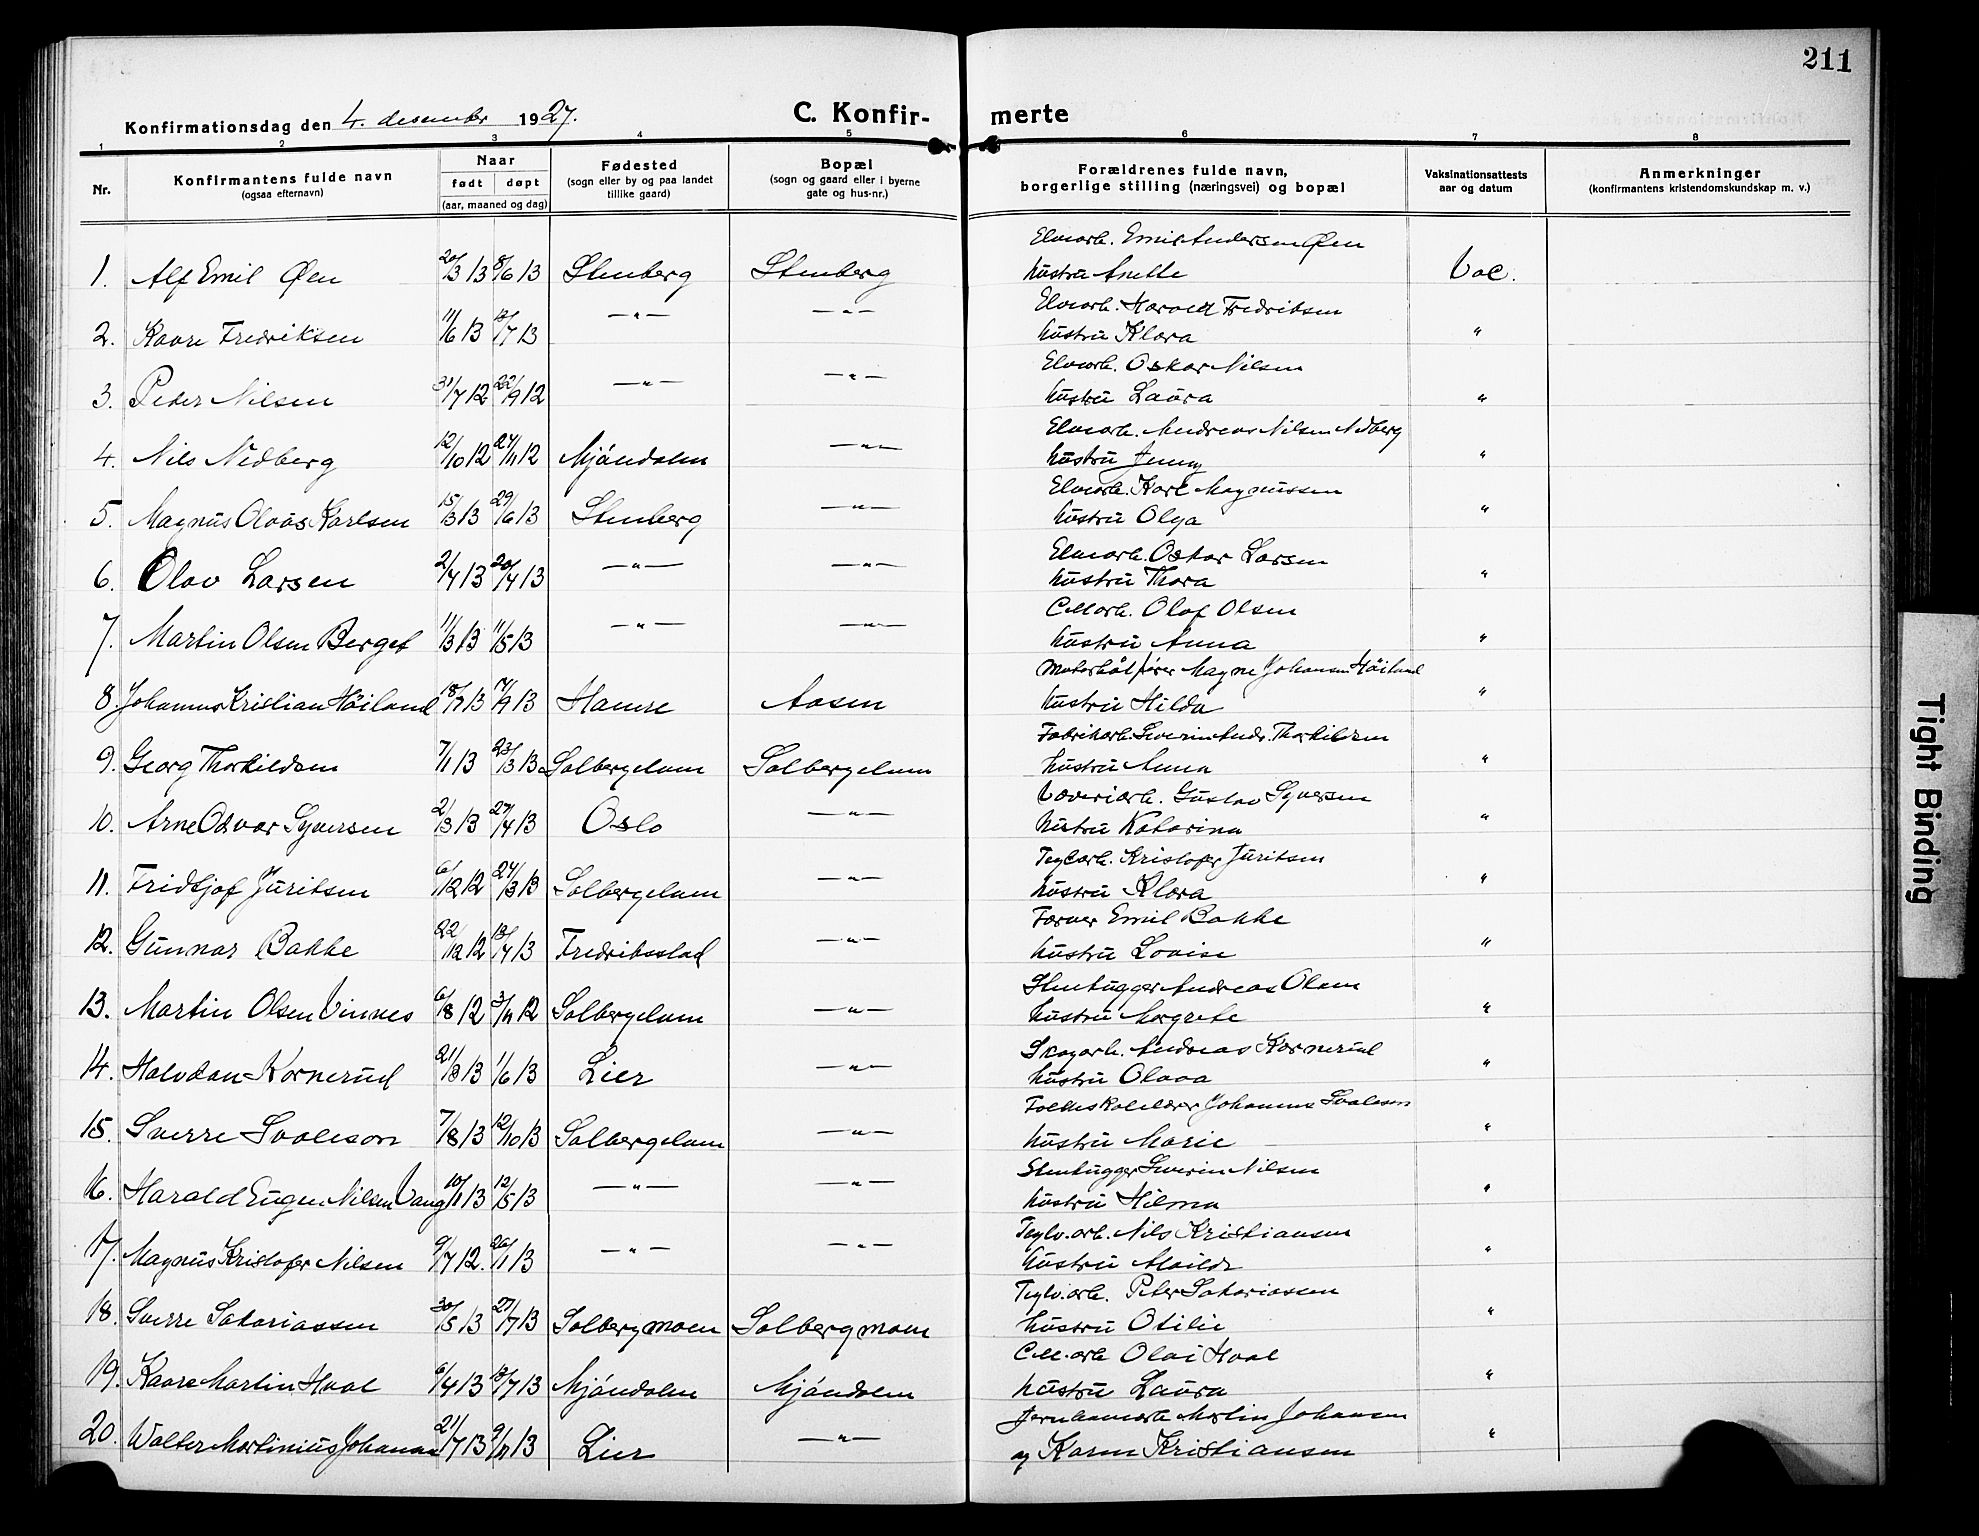 211
Konfirmationsdag den 4. desember 1927.
C. Konfir-merte
1 2 3 4 5 6 7 8
Nr.
Konfirmantens fulde navn
(ogsaa efternavn)
Naar
født døpt
(aar, maaned og dag)
Fødested
(sogn eller by og paa landet
tillike gaard)
Bopæl
(sogn og gaard eller i byerne
gate og hus-nr.)
Forældrenes fulde navn,
borgerlige stilling (næringsvei) og bopæl
Vaksinationsattests
aar og datum
Anmerkninger
(konfirmantens kristendomskundskap m. v.)
Elvearb. Emil Andersen Øen
1. Alf Emil Øen 20/3 13 8/6 13 Stenberg Stenberg hustru Anette Vac.
Elvearb. Harald Fredriksen
2. Kaare Fredriksen 11/6 13 13/7 13 —"— —"— hustru Klara "
Elvearb. Oskar Nilsen
3. Peder Nilsen 31/7 12 22/9 12 —"— —"— hustru Laura "
Elvearb. Andreas Nilsen Nedberg
4. Nils Nedberg 12/10 12 24/11 12 Mjöndalen —"— hustru Jenny "
Elvearb. Karl Magnussen
5. Magnus Olaus Karlsen 15/3 13 29/6 13 Stenberg —"— hustru Olga "
Elvearb. Oskar Larsen
6. Olav Larsen 2/4 13 20/4 13 —"— —"— hustru Thora "
Cell.arb. Olaf Olsen
7. Martin Olsen Berget 11/3 13 11/5 13 —"— —"— hustru Anna "
Motorbåtfører Magne Johansen Höiland
8. Johannes Kristian Höiland 18/7 13 7/9 13 Hamre Aasen hustru Hilda "
Fabrikarb. Severin Andr. Thorkildsen
9. Georg Thorkildsen 7/1 13 23/3 13 Solbergelven Solbergelven hustru Anna "
Væveriarb. Gustav Syversen
10. Arne Odvar Syversen 2/3 13 27/4 13 Oslo —"— hustru Katarina "
Teglv.arb. Kristofer Juritsen
11. Fridtjof Juritsen 6/12 12 24/3 13 Solbergelven —"— hustru Klara "
Farver Emil Bakke
12. Gunnar Bakke 22/12 12 13/4 13 Fredriksstad —"— hustru Lovise "
Stenhugger Andreas Olsen
13. Martin Olsen Vinnes 6/8 12 3/11 12 Solbergelven —"— hustru Margrete "
Skogarb. Andreas Kornerud
14. Halvdan Kornerud 21/3 13 1/6 13 Lier —"— hustru Olava "
Folkeskolelærer Johannes Svaleson
15. Sverre Svaleson 7/8 13 12/10 13 Solbergelven —"— hustru Marie "
Stenhugger Severin Nilsen
16. Harald Eugen Nilsen Vang 10/1 13 12/5 13 —"— —"— hustru Hilma "
Teglv.arb. Nils Kristiansen
17. Magnus Kristofer Nilsen 9/7 12. 26/1 13 —"— —"— hustru Mailde "
Teglv.arb. Peter Sakariassen
18. Sverre Sakariassen 30/5 13 27/7 13 Solbergmoen Solbergmoen hustru Otilie "
Cell.arb. Olai Hval
19. Kaare Martin Hval 6/4 13 13/7 13 Mjöndalen Mjöndalen hustru Laura "
Jernbanearb. Martin Johansen
20. Walter Martinius Johansen 21/7 13 9/11 13 Lier —"— og Karen Kristiansen "
Tight Binding